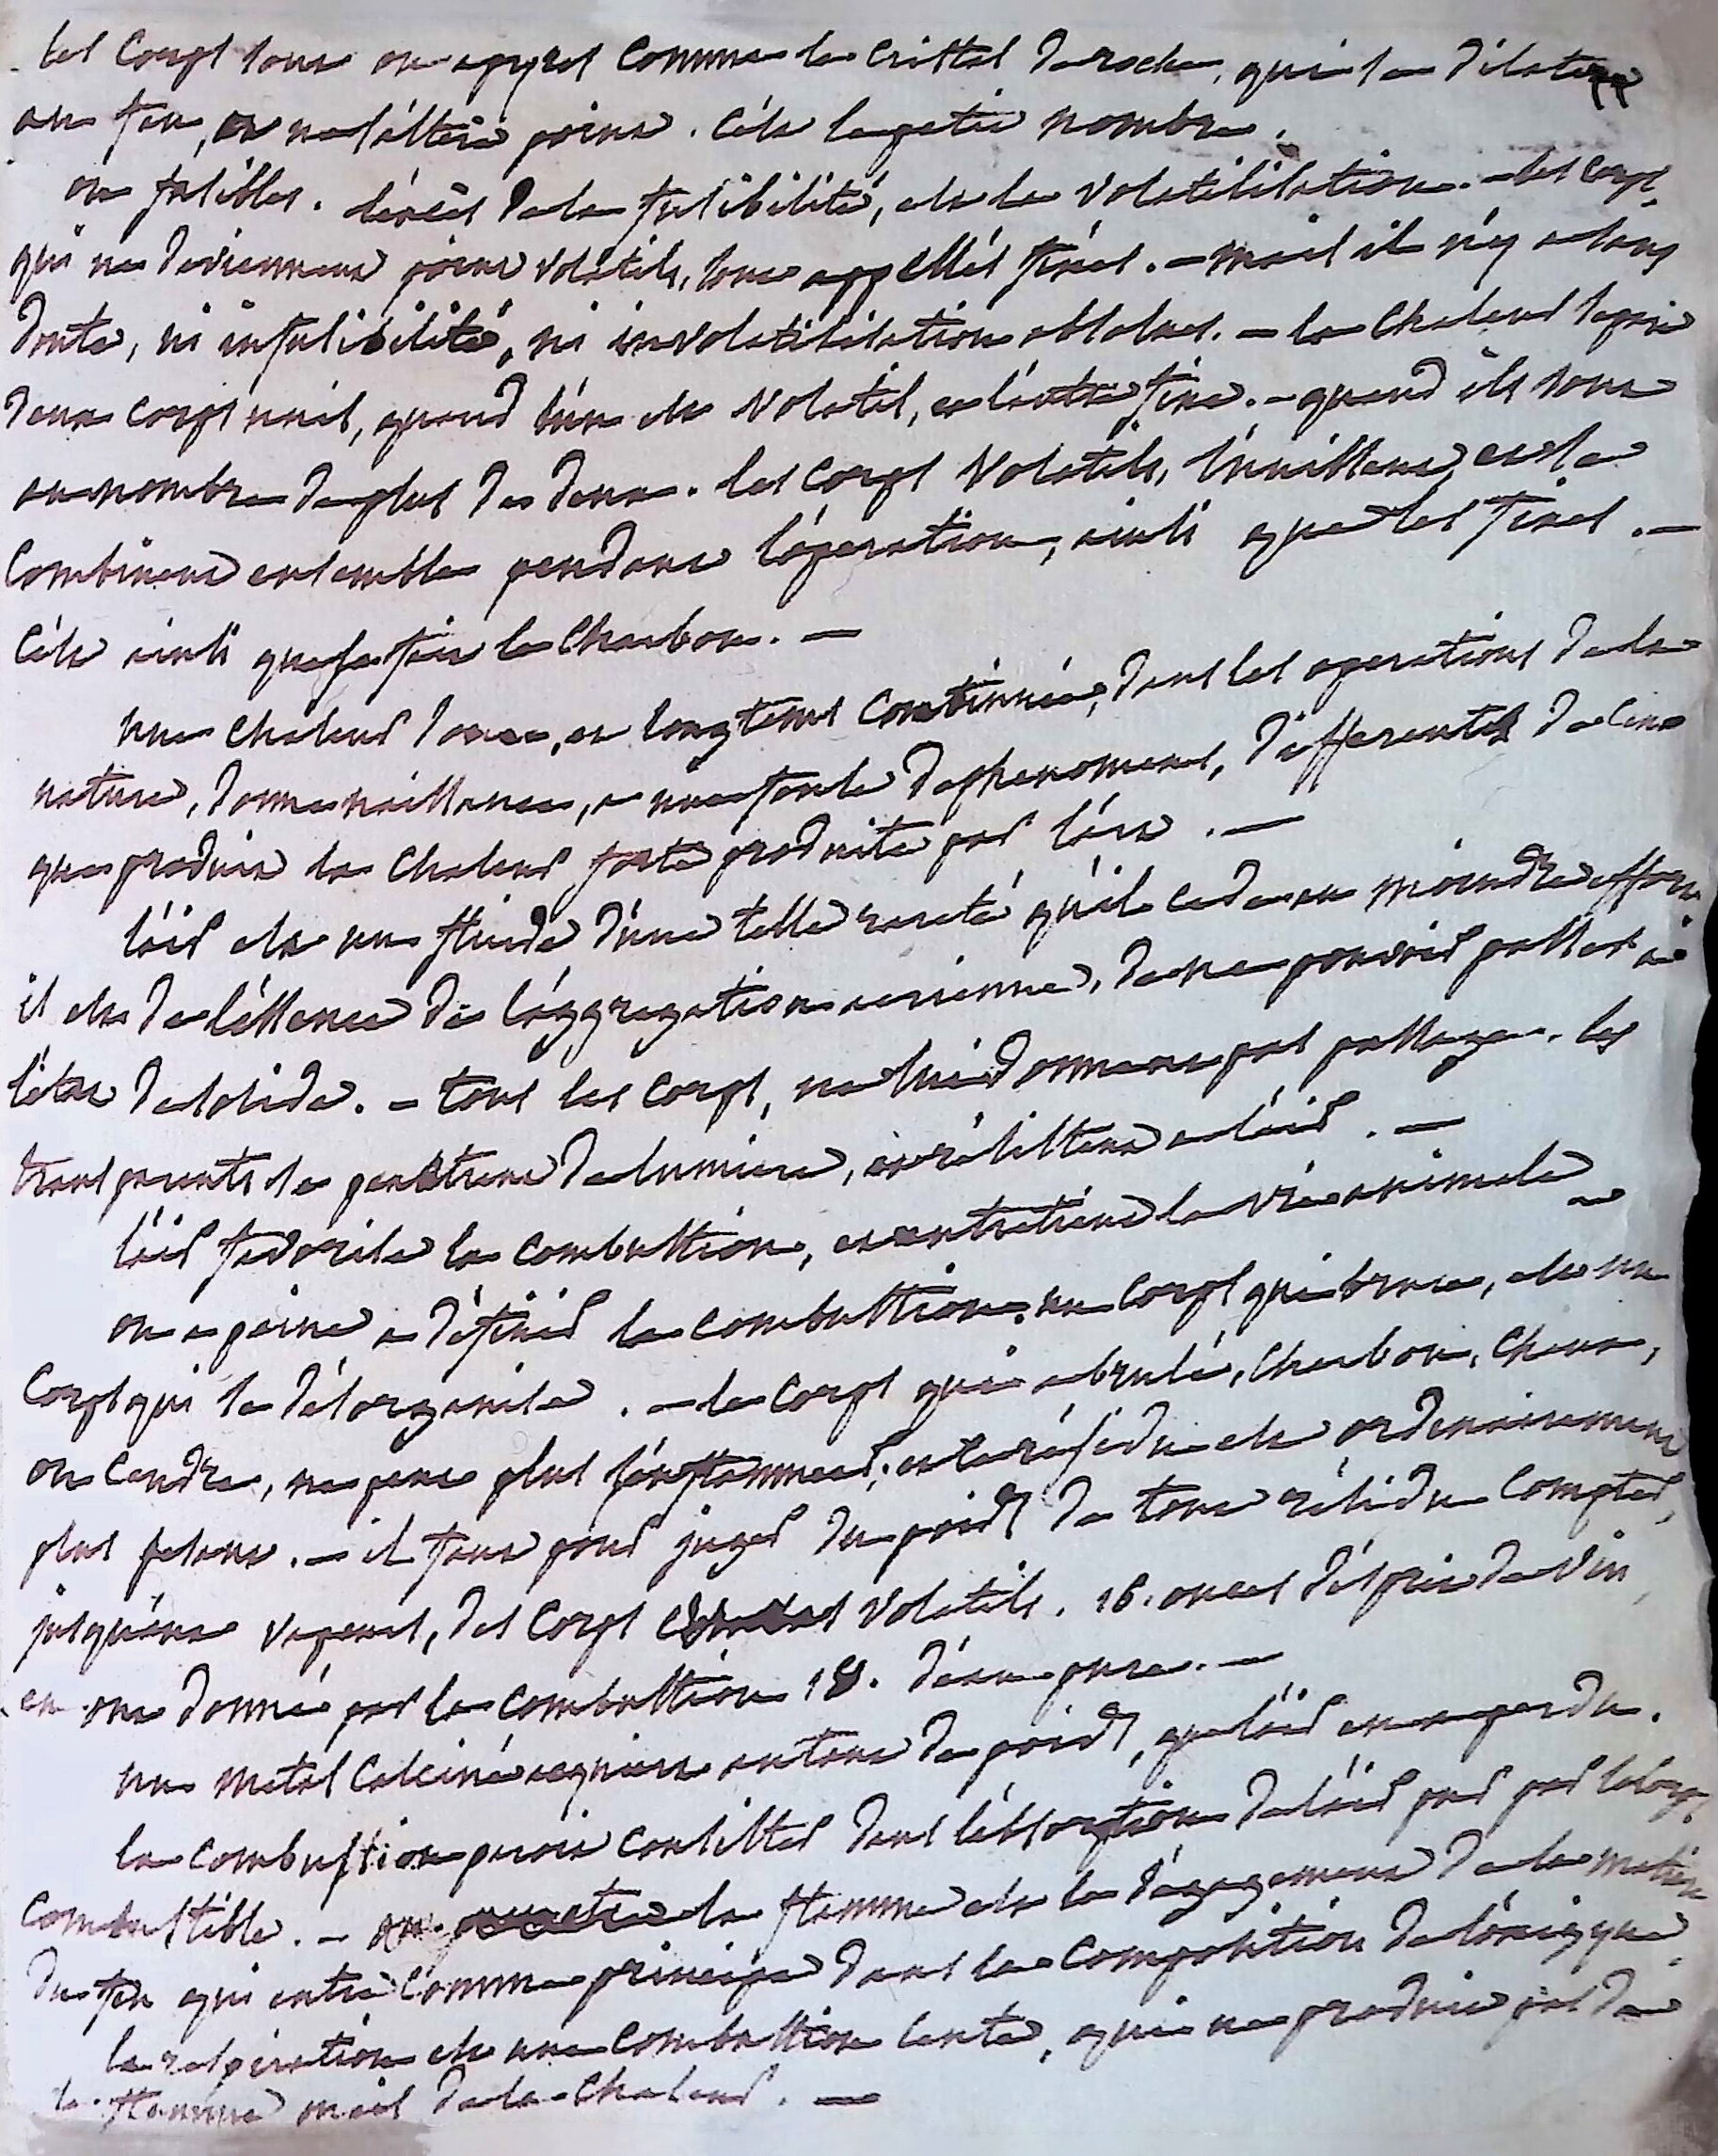 les corps sont ou apyres comme le cristal de roche, qui se dilate
au feu, et ne s'altere point. c'est le petit nombre.
ou fusibles. l'excès de la fusibilité, est la volatilisation. - les corps
qui ne deviennent point volatils, sont appellés fixes. - mais il n'y a sans
doute, ni infusibilité, ni involatilisation absolues. - la chaleur separe
deux corps unis, quand l'un est volatil, et l'autre fixe. - quand ils sont
au nombre de plus de deux. les corps volatils, s'unissent, et se
combinent ensemble pendant l'operation, ainsi que les fixes. -
C'est ainsi que se fait le charbon. -
une chaleur douce, et longtems continuée, dans les operations de la
nature, donne naissance, a une foule de phenomenes, differents de ceux
que produit la chaleur forte produite par l'art. -
l'air est un fluide d'une telle rareté qu'il cede au moindre effort
il est de l'essence de l'aggregation aerienne, de ne pouvoir passer a
l'état de solide. - tous les corps, ne lui donnent pas passage. les
transparents se penetrent de lumiere, et résistent a l'air. -
l'air favorise la combustion, et entretient la vie animale
on a peine a définir la combustion. un corps qui brule, est un
corps qui se désorganise. - le corps qui a brulé, charbon, chaux,
ou cendre, ne peut plus s'enflammer; et le résidu est ordinairement
plus pesant. - il faut pour juger du poids de tout résidu compter,
jusqu'aux vapeurs, des corps volatils. 16. onces d'esprit de vin
en ont donné par la combustion 18. d'eau pure. -
un metal calciné acquiert autant de poids, que l'air en a perdu.
la combustion paroit consister dans l'absorption de l'air pur par le corps
combustible. - la flamme est le dégagement de la matiere
du feu qui entre comme principe dans la composition de l'oxigque.
la respiration est une combustion lente, qui ne produit pas de
la flamme mais de la chaleur. -